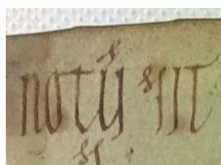 notū sit